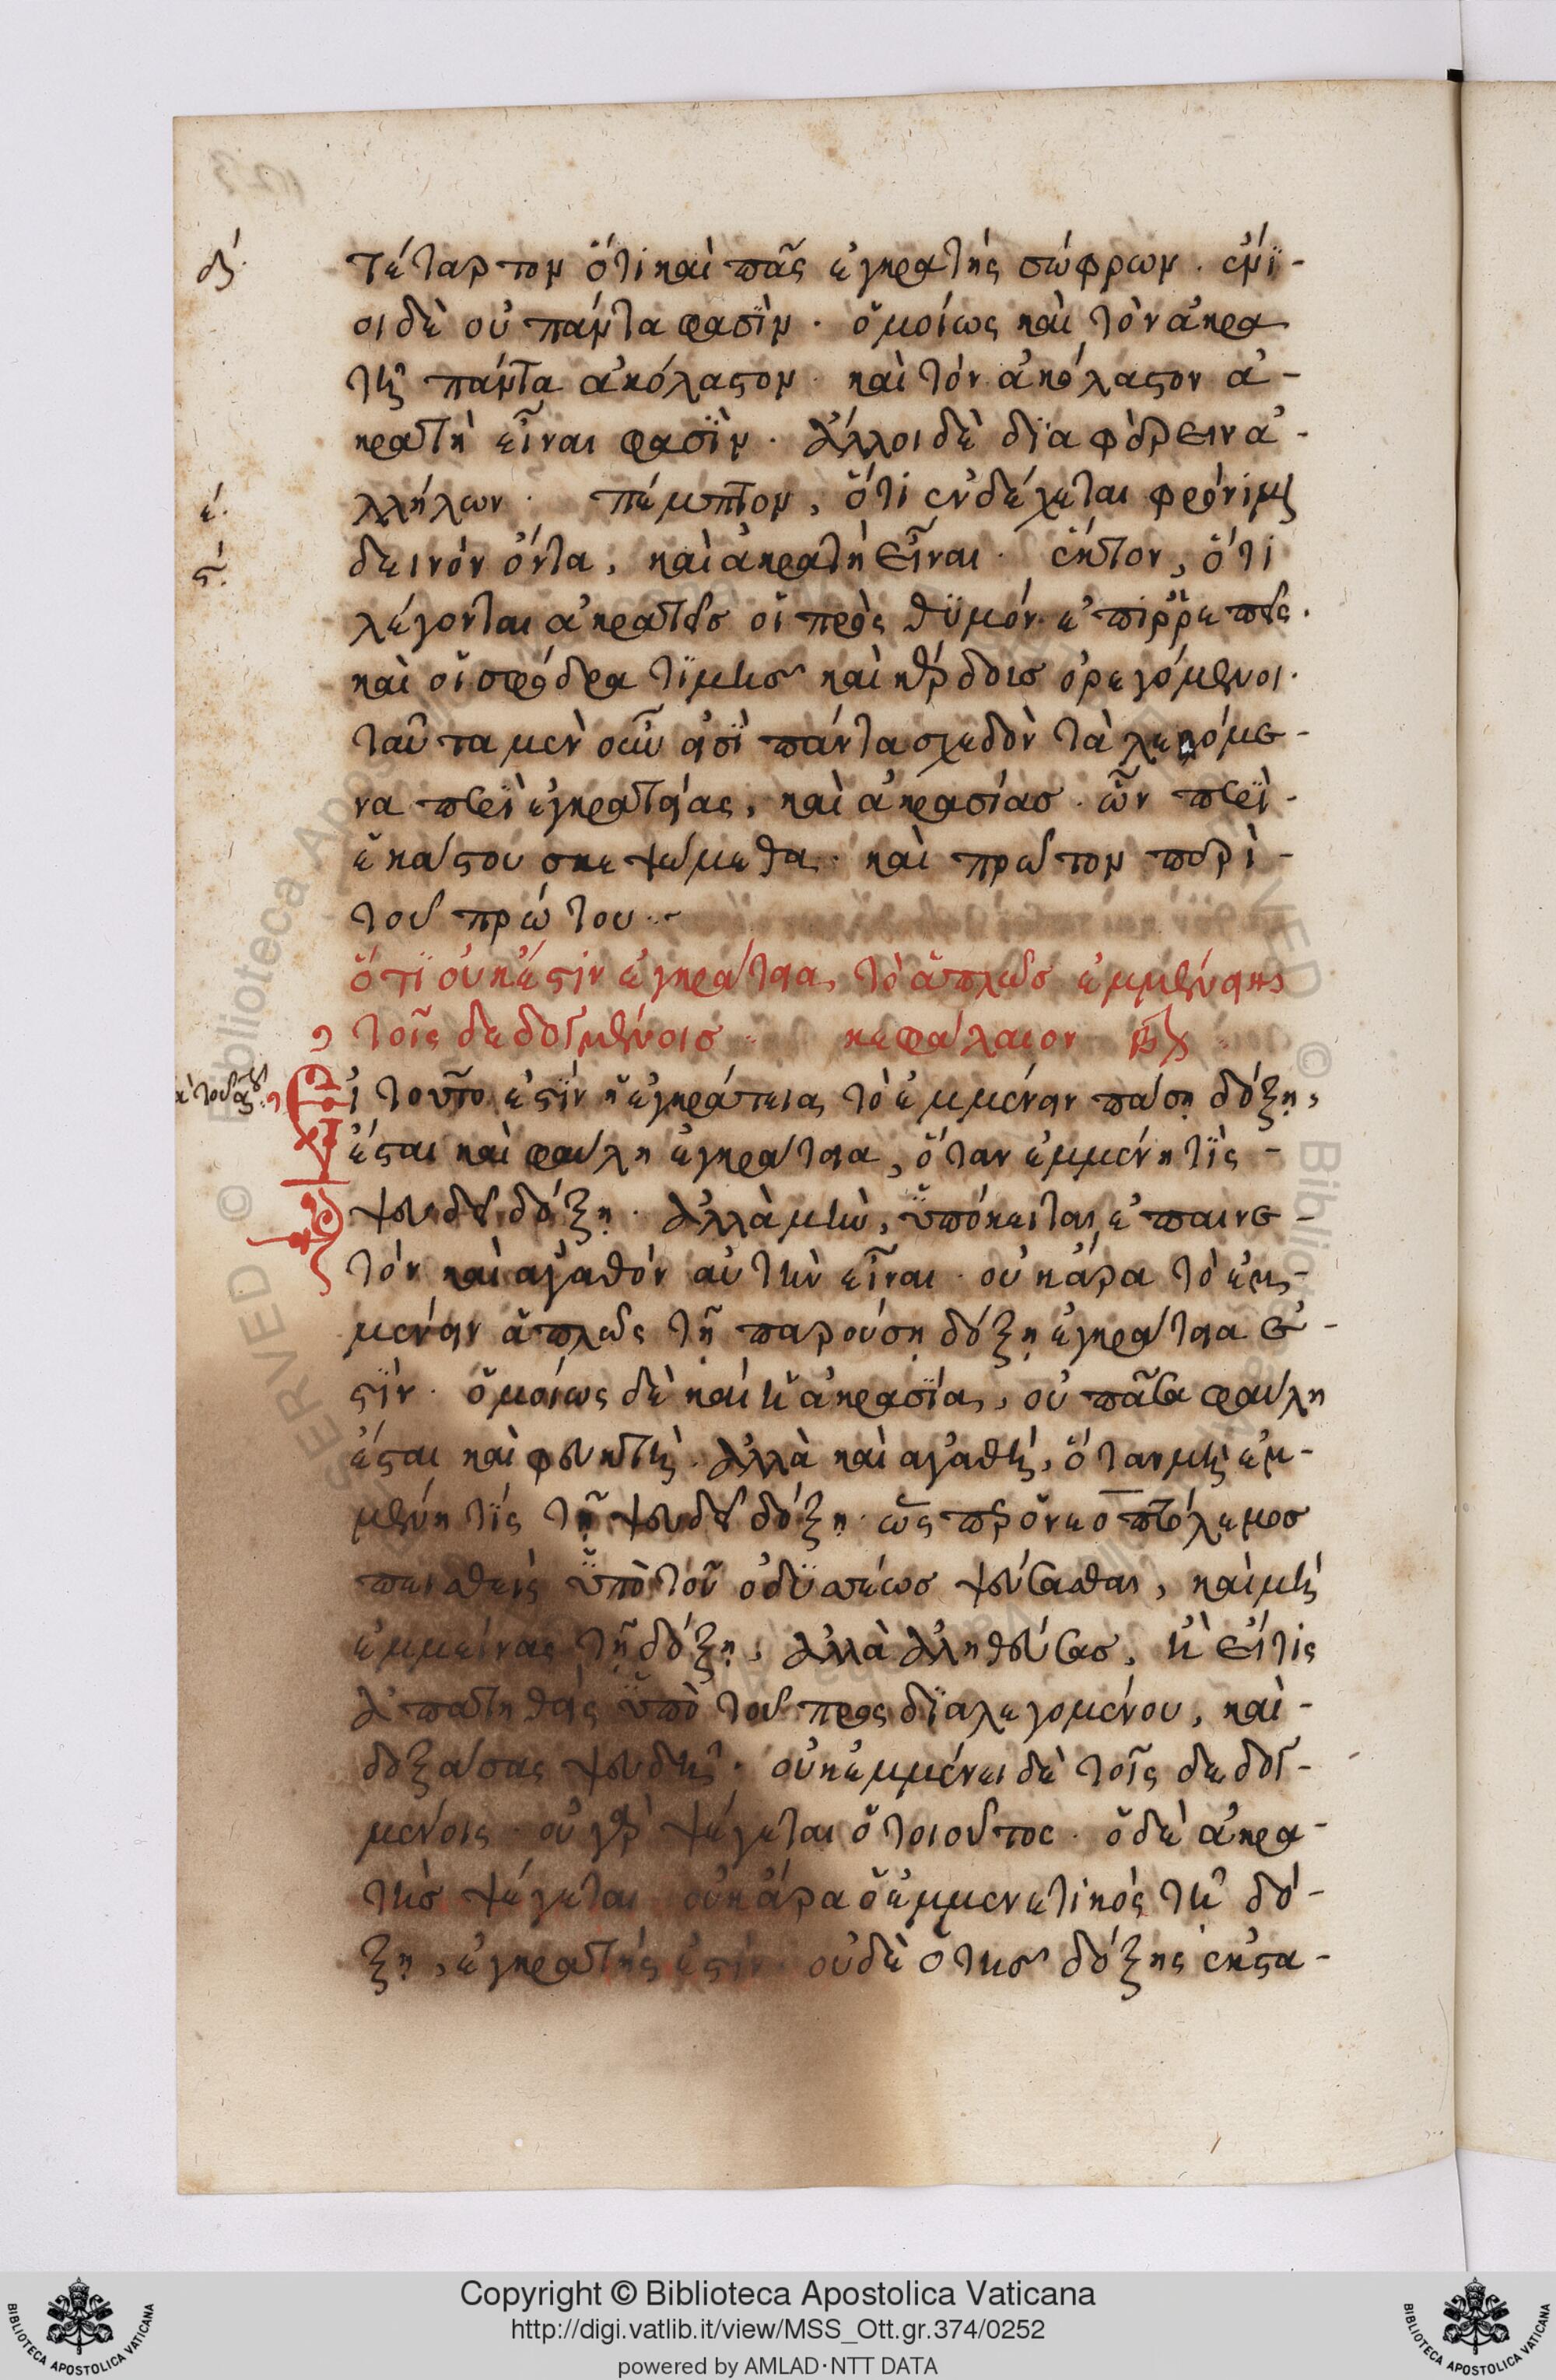 δ΄.
τέταρτον ὅτι καὶ πᾶς ἐγκρατής σώφρων. ἔνϊ-
οι δὲ οὐ πάντα φασϊν. ὁμοίως καὶ τὸν ἀκρα
τῆ πάντα ἀκόλαστον. καὶ τόν ἀκόλαστον ἀ-
κρατὴ εἶναι φασϊν. ἄλλοι δὲ δϊαφέρειν ἀ-
ε΄.
λλήλων. πέμπτον, ὅτι ἐνδέχεται φρόνιμον
ς΄.
δεινόν ὄντα, καὶ ἀκρατὴ εἶναι. ἕκτον, ὅτι
λέγονται ἀκρατεῖς οἱ πρὸς θϋμόν ἐπιρρεπεῖς.
καὶ οἱ σφόδρα τϊμῆς καὶ κέρδους ὀρεγόμενοι.
ταῦτα μὲν οὖν εἰσῒ πάντα σχεδὸν τὰ λεγόμε-
να περῒ ἐγκρατείας, καὶ ἀκρασίας. ὧν περῒ-
ἑκάστου σκεψώμεθα. καὶ πρῶτον περὶ-
τοῦ πρώτου.
ὅτϊ οὐκ ἔστιν ἐγκράτεια, τὸ ἁπλῶς ἐμμένειν
τοῖς δεδογμένοισ. κεφάλαιον β
Εἰ τοῦτο ἐστῒν ἡ ἐγκράτεια, τὸ ἐμμένειν πάση δόξη,
ἔσται καὶ φαύλη ἐγκράτεια, ὅταν ἐμμένη τῒς-
ψευδεῖ δόξη. ἀλλὰ μὴν, ὑπόκειται, ἐπαινε-
τόν καὶ ἀγαθόν αὐτὴν εἶναι. οὐκ ἄρα τὸ ἐμ-
μένειν ἁπλῶς τῆ παρούση δόξη ἐγκράτεια ἐ-
στῒν. ὁμοίως δὲ καὶ ἡ ἀκρασῒα, οὐ πᾶσα φαύλη
ἔσται καὶ φευκτὴ. ἀλλὰ καὶ ἀγαθή, ὅταν μὴ ἐμ-
μένη τῒς τῆ ψευδεῖ δόξη. ὥσπερ ὁ νεοπτόλεμος
πεισθεὶς ὑπὸ τοῦ ὀδϋσσέωσ ψεύσασθαι, καὶ μὴ
ἐμμείνας τῆ δόξη, ἀλλὰ ἀληθεύσας, ἢ εἴ τις
ἀπατηθεὶς ὑπὸ τοῦ προσδϊαλεγομένου, καὶ-
δοξάσας ψευδῆ. οὐκ ἐμμένει δὲ τοῖς δεδογ-
μένοις. οὐ γὰρ ψέγεται ὁ τοιοῦτος. ὁ δὲ ἀκρα-
τὴς ψέγεται οὐκ ἄρα ὁ ἐμμενετικός τῆ δό-
ξη, ἐγκρατής ἐστϊν. οὐδὲ ὁ τῆς δόξης ἐκστα-
Copyright © Biblioteca Apostolica Vaticana
http://digi.vatlib.it/view/MSS_Ott.gr.374/0252
powered by AMLAD·NTT DATA
BIBLIOTECA APOSTOLICA VATICANA
BIBLIOTECA APOSTOLICA VATICANA